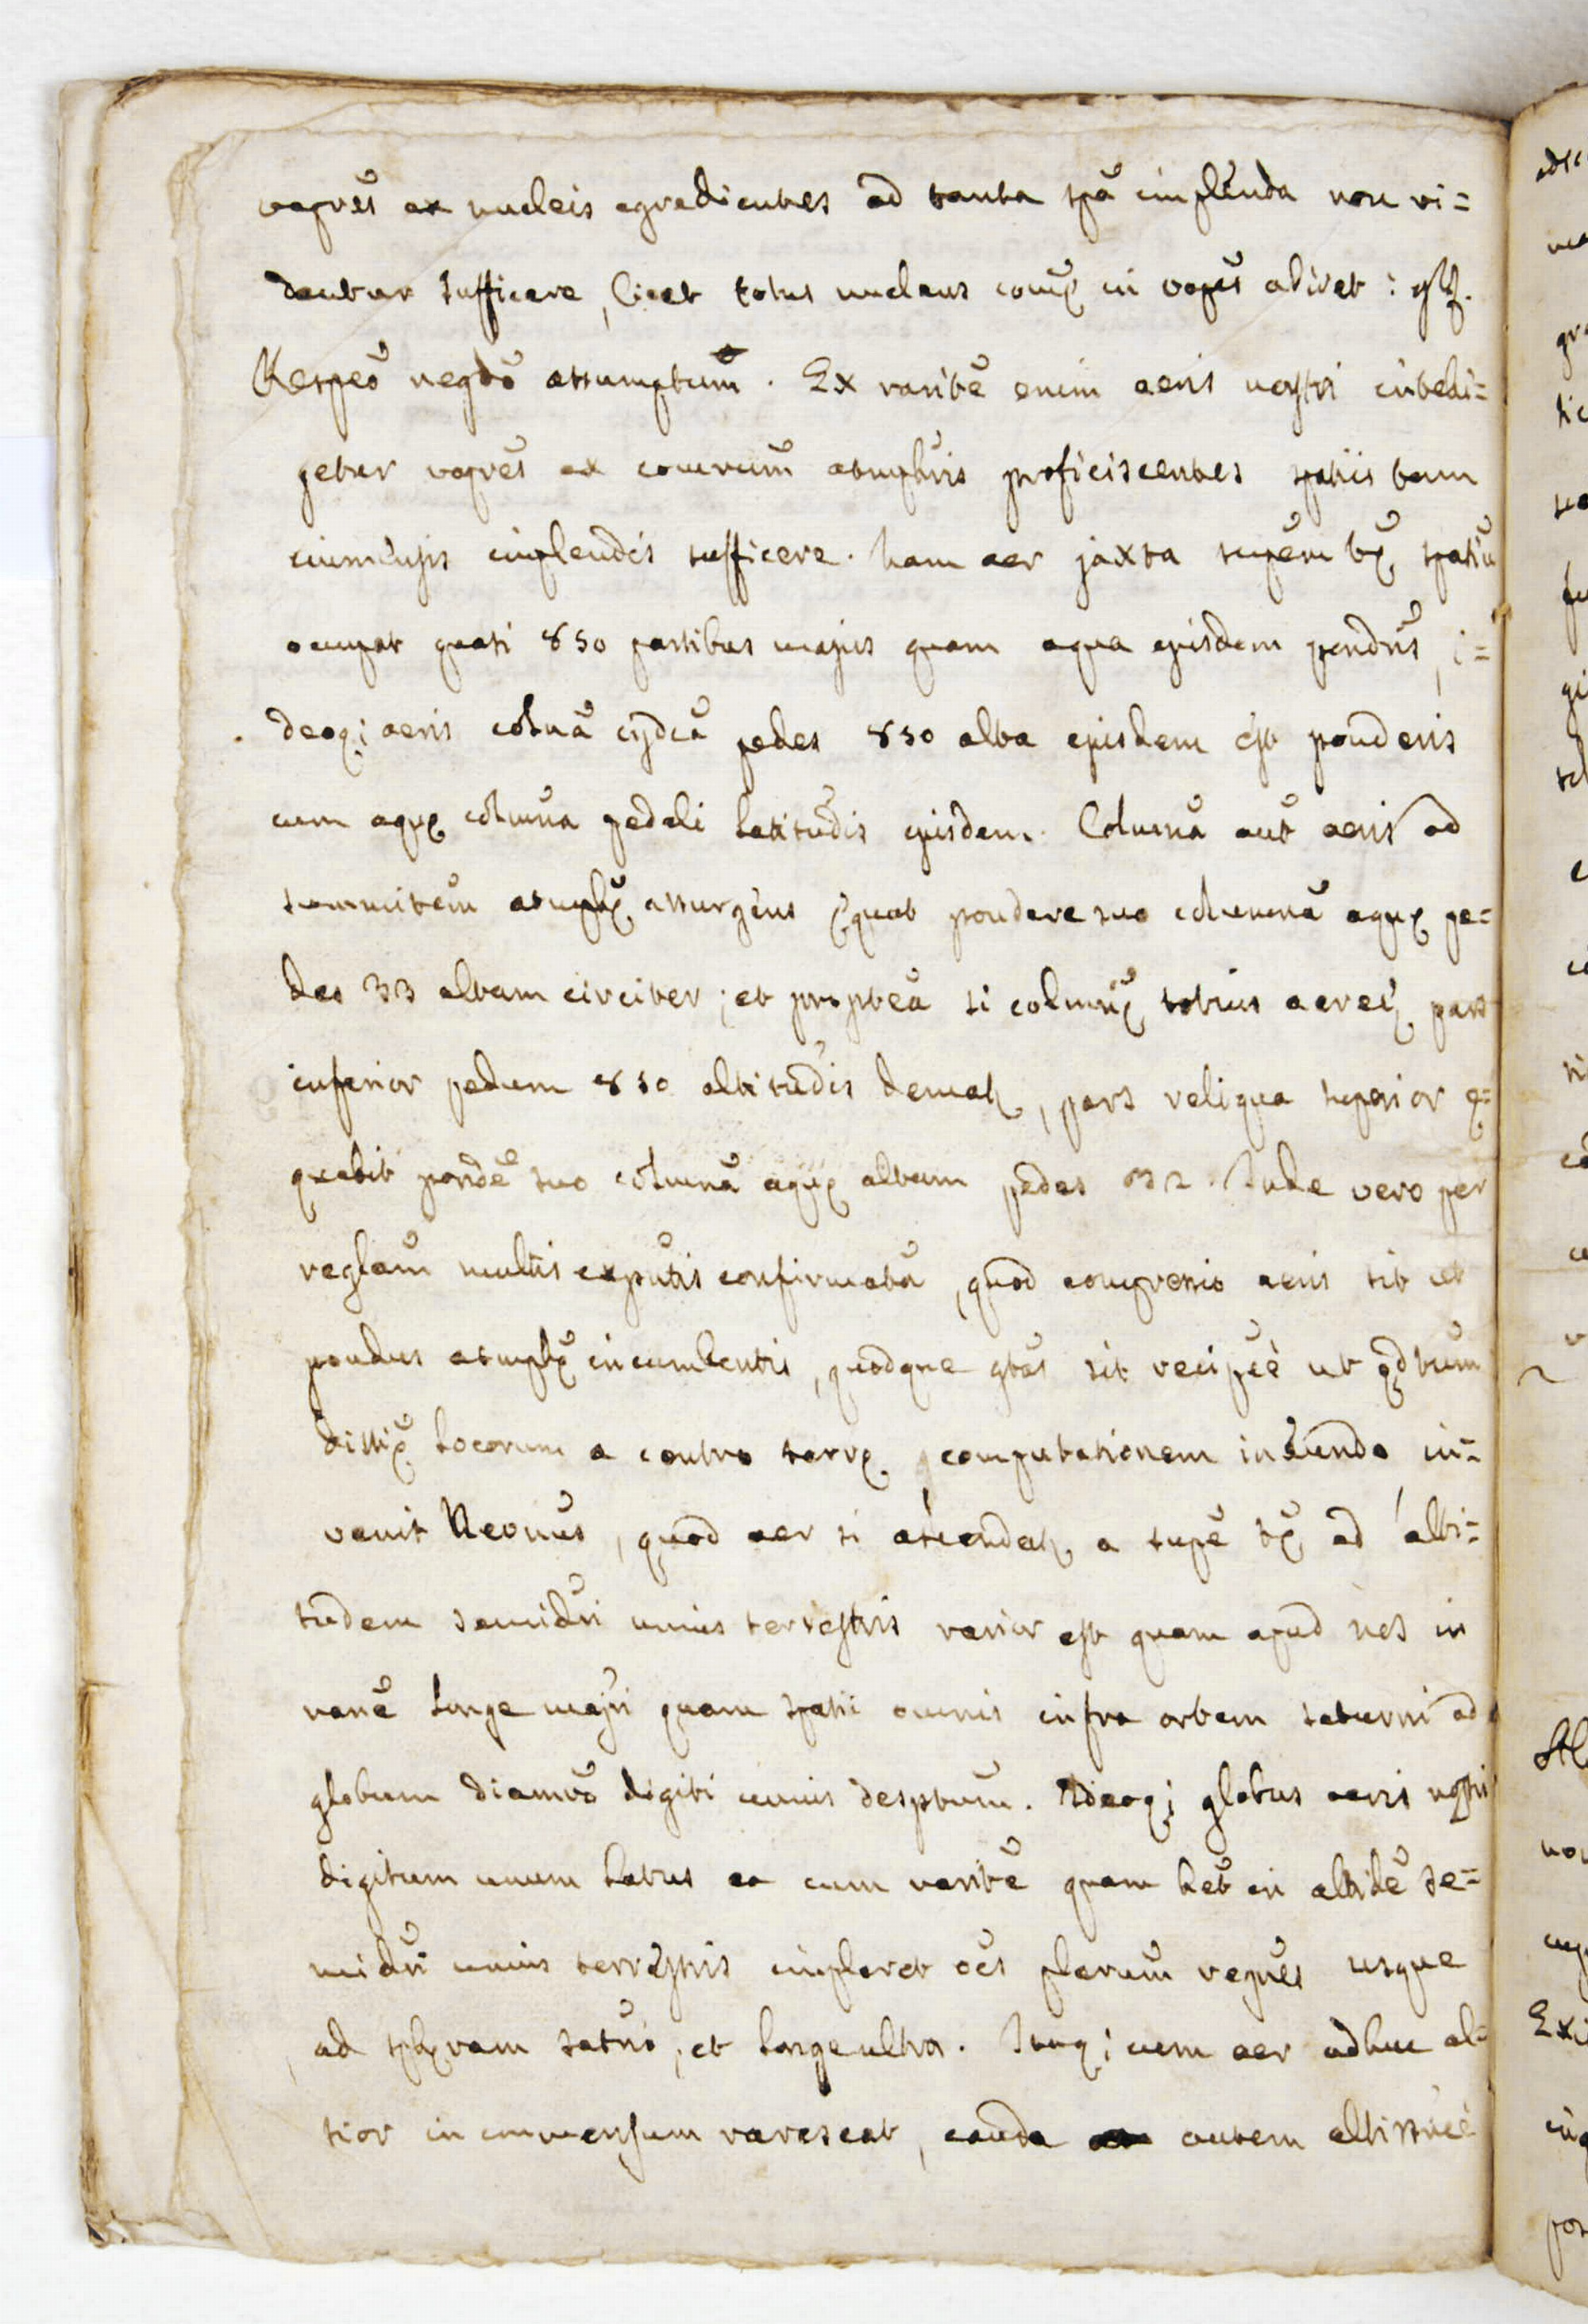 vapr̃es ex nucleis egredientes ad tanta spã implenda non vi=
dentur sufficere, licet totus nucleus comæ in vapes̃ abiret:
Respeõ negdõ assumptum̃. Ex raritẽ enim aeris nostri inteli=
getur vapres̃ ex comarum̃ atmphris̃ proficiscentes spatiis tam
immensis implendis sufficere. Nam aer juxta supem̃ tæ̃ spatiũ
occupat quasi 850 partibus majus quam aqua ejusdem pondris̃, i=
deoq; aeris colnã cijdcã pedes 850 alta ejusdem est ponderis
cum aquæ colum̃na pedali latitud̃is ejusdem. Columnã aut̃ aeris ad
summitem̃ atmphæ̃ assurgens æquat pondere suo columnã aquæ pe=
des 33 altam circiter; et proptea ̃si columñæ totius aereæ pars
inferior pedum 850 altitud̃is dematr, pars reliqua superior æ=
quabit pondẽ suo columnã aquæ altam pedes 32. Inde vero per
reglam̃ multis expmtis̃ confirmatã, quod compressio aeris sit ut
pondus atmphæ̃ incumbentis, quodque gtas̃ sit recipcẽ ut qdtum̃
distiæ̃ locorum a centro terræ, computationem ineundo in=
venit Neonus̃, quod aer si ascendatr a supẽ tæ̃ ad alti=
tudem semidrĩ unius terrestris rarior est quam apud nos in
ranẽ longe majrĩ quam spatii omnis infra orbem saturni ad
globum diamrõ digiti unius desptum̃. Ideoq; globus aeris nostri
digitum unum latus ea cum raritẽ quam het̃ in altidẽ se=
midrĩ unius terrestris impleret oẽs plarum̃ regnẽs usque
ad sphæram satrñi, et longe ultra. Itaq; cum aer adhuc al=
tior in immensum rarescat, cauda autem altissmẽ